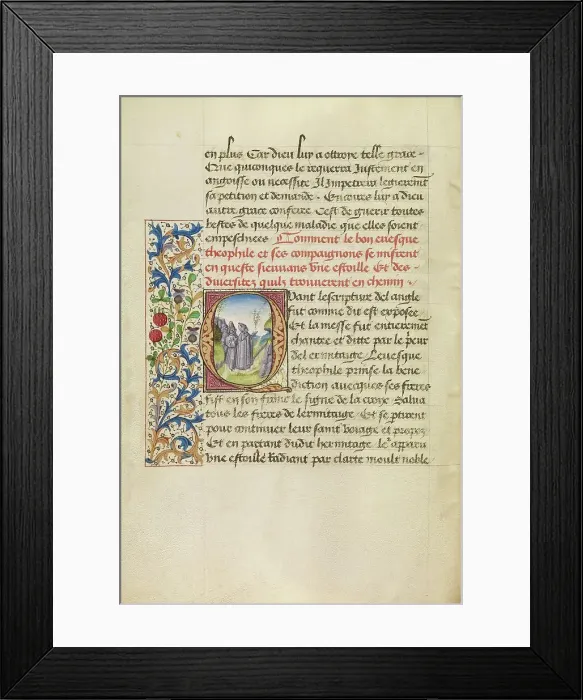 en plus Car dieu luy a ottroye telle grace
Que quiconques le requerra Justement en
angoisse ou necessite Il Impetrera legierement
sa petition et demande Encores luy a dieu
autre grace conferee Cest de guerir toutes
bestes de quelque maladie que elles soient
empeschiees Comment le bon euesque
theophile et ses compaignons se misrent
en queste sieuuans vne estoille Et des
diuersitez quilz trouuerent en chemin
Quant lescripture del angle
fut comme dit est exposee
Et la messe fut entierement
chantee et ditte par le prieur
del ermitaige Leuesque
theophile prinse la bene
diction auecques ses freres
fist en son frant le signe de la croix Salua
tous les freres de lermitaige Et se ptirent
pour continuer leur saint voiage et propoz
Et en partant dudit hermitage le apparu
vne estoille Radiant par clarte moult noble